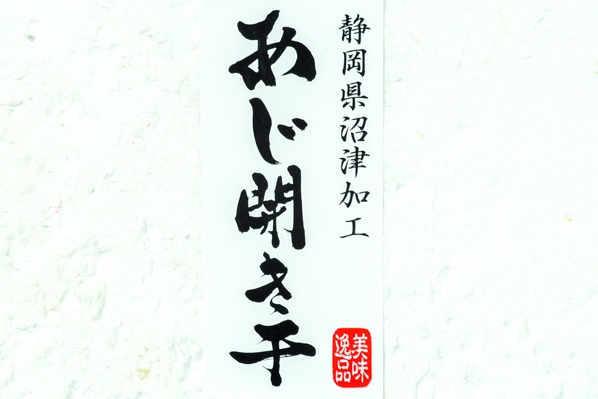 静岡県沼津加工
あじ開き干
美味
逸品